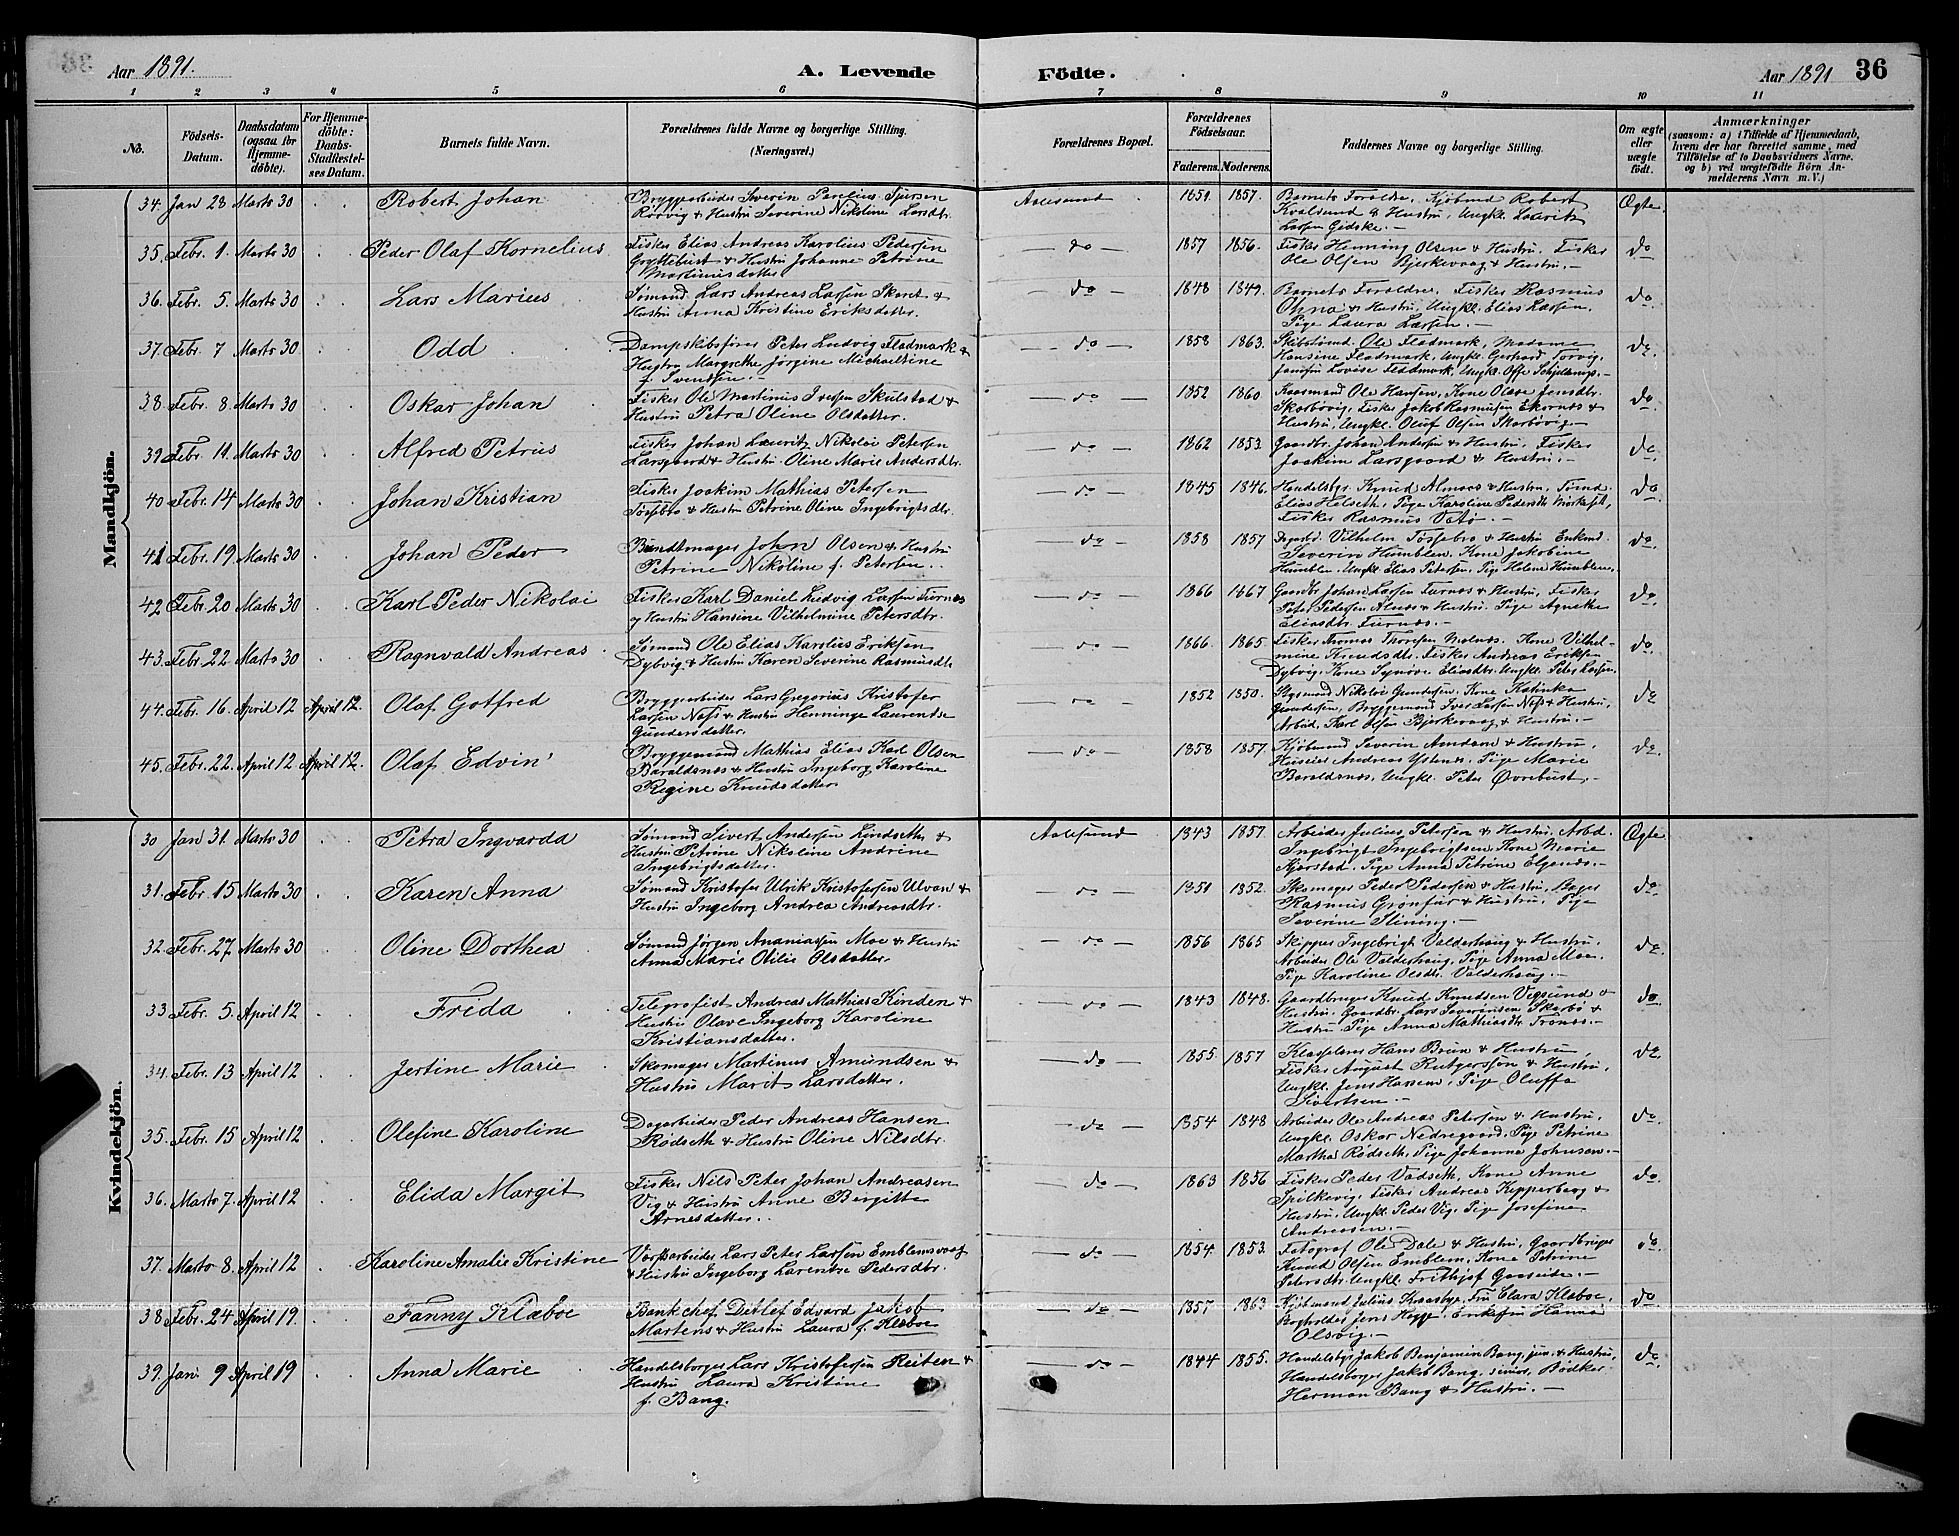 Aar 1891.
A. Levende Födte.
Aar 1891
36
1 2 3 4 5 6 7 8 9 10 11
No.
Födsels-Datum.
Daabsdatum (ogsaa for Hjemme-döbte).
For Hjemme-döbte: Daabs-Stadfæstel-ses Datum.
Barnets fulde Navn.
Forældrenes fulde Navne og borgerlige Stilling. (Næringsvei.)
Forældrenes Bopæl.
Forældrenes Födselsaar.
Faderens. Moderens.
Faddernes Navne og borgerlige Stilling.
Om ægte eller uægte födt.
Anmærkninger
(saasom: a) i Tilfælde af Hjemmedaab, hvem der har forrettet samme, med Tilföielse af to Daabsvidners Navne, og b) ved uægtefödte Börn An-melderens Navn m. V.)
Mandkjön.
34. Jan 28 Marts 30 Robert Johan
Bryggearbeider Severin Parelius Sjursen
Rørvig & Hustru Severine Nikoline Larsdtr.
Aalesund 1851. 1857.
Barnets Forældre, Kjøbmd Robert
Kvalsund & Hustru, Ungkl. Laurits
Larsen Gidske. —
Ægte.
35. Febr. 1. Marts 30 Peder Olaf Kornelius
Fisker Elias Andreas Karolius Pedersen
Gryttebust & Hustru Johanne Petrine
Martinusdatter
— do — 1857 1856.
Fisker Henning Olsen & Hustru, Fisker
Ole Olsen Bjerkevaag & Hustru. —
do
36. Febr. 5. Marts 30 Lars Marius
Sømand Lars Andreas Larsen Skaret &
Hustru Anna Kristine Eriksdatter.
— do — 1848 1849.
Barnets Forældre, Fisker Rasmus
Ohna & Hustru, Ungkl. Elias Larsen,
Pige Laura Larsen. —
do
37. Febr. 7 Marts 30 Odd
Dampskibsfører Peter Ludvig Fladmark &
Hustru Margrethe Jørgine Michaeltine
f. Svendsen. —
— do — 1858 1863.
Skibstømd. Ole Fladmark, Madame
Hansine Fladmark, Ungkl. Gerhard Torvig,
Jomfru Lovise Fladmark, Ungkl. Offe Schjelderup. —
do.
38. Febr. 8 Marts 30 Oskar Johan
Fisker Ole Martinus Iversen Skulstad &
Hustru Petra Oline Olsdatter.
— do — 1852 1860
Kaarmand Ole Hansen, Kone Olave Jensdtr.
Skorbøvig, Fisker Jakob Rasmussen Ekornæs &
Hustru, Ungkl. Oluf Olsen Skarbøvig. —
do.
39 Febr. 11. Marts 30 Alfred Petrus
Fisker Johan Lauritz Nikolai Petersen
Larsgaard & Hustru Oline Marie Andersdtr.
— do — 1862 1853.
Gaardbr. Johan Andersen & Hustru, Fisker
Joakim Larsgaard & Hustru. —
do.
40 Febr. 14 Marts 30 Johan Kristian
Fisker Joakim Mathias Petersen
Tøssebro & Hustru Petrine Oline Ingebrigtsdtr.
— do — 1845 1846.
Handelsbgr. Knud Alnæs & Hustru, Tømd.
Elias Helseth, Pige Karoline Pedersdtr.
Fisker Rasmus Vatø. —
do
41 Febr. 19. Marts 30 Johan Peder
Bundtmager John Olsen & Hustru
Petrine Nikoline f. Petersen.
— do — 1858 1857
Vilhelm Tøssebro & Hustru Enkmd.
Severin Humblen, Kone Jakobine
Humblen, Ungkl. Elias Petersen, Pige Helene Humblen.
do.
42 Febr. 20 Marts 30 Karl Peder Nikolai
Fisker Karl Daniel Ludvig Larsen Furnæs
og Hustru Hansine Vilhelmine Petersdtr.
— do — 1866 1867
Gaardbr. Johan Larsen Furnæs & Hustru, Fisker
Peter Pedersen Alnæs & Hustru, Pige Agnethe
Eliasdtr. Furnæs. —
do.
43. Febr. 22 Marts 30 Ragnvald Andreas
Sømand Ole Elias Karolius Eriksen
Dybvig & Hustru Karen Severine Rasmusdtr.
— do — 1866. 1865.
Fisker Thomas Thoresen Molnæs, Kone Vilhel-
mine Knudsdtr. Fisker Andreas Eriksen
Dybvig, Kone Synøve Eliasdtr. Ungkl. Peter Larsen.
do.
44. Febr. 16. April 12 April 12. Olaf Gotfred
Bryggearbeider Lars Gregorius Kristofer
Larsen Næss & Hustru Henninge Laurentse
Gundersdatter.
— do — 1852 1850.
Nikolai Gundersen, Kone Katinka
Gundersen, Bryggemand Iver Larsen Næss & Hustru,
Arbeid. Karl Olsen Bjerkevaag & Hustru. —
do
45. Febr. 22. April 12 April 12. Olaf Edvin
Bryggemand Mathias Elias Karl Olsen
Baraldsnæs & Hustru Ingeborg Karoline
Regine Knudsdatter.
— do — 1858 1857.
Kjøbmand Severin Amdam & Hustru,
Huseier Andreas Ystenæs, Pige Marie
Baraldsnæs, Ungkl. Peter Øvrebust. —
do.
Kvindekjön.
30 Jan 31. Marts 30 Petra Ingvarda
Sømand Sivert Andersen Lindseth &
Hustru Petrine Nikoline Andrine
Ingebrigtsdatter.
Aalesund 1843 1857.
Arbeider Julius Petersen & Hustru, Arbd.
Ingebrigt Ingebrigtsen, Kone Marie
Kjerstad, Pige Anna Petrine Elgenæs. —
Ægte
31. Febr. 15 Marts 30 Karen Anna
Sømand Kristofer Ulrik Kristofersen Ulvan &
Hustru Ingeborg Andrea Andreasdtr.
— do — 1851 1852.
Skomager Peder Pedersen & Hustru, Bager
Rasmus Grønfur & Hustru, Pige
Severine Slining. —
do.
32. Febr. 27 Marts 30 Oline Dorthea
Sømand Jørgen Ananiassen Moe & Hustru
Anna Marie Otilie Olsdatter.
— do — 1856 1865
Skipper Ingebrigt Valderhaug & Hustru,
Arbeider Ole Valderhaug, Pige Anna Moe,
Pige Karoline Olsdtr. Valderhaug. —
do.
33 Febr. 5. April 12 Frida
Telegrafist Andreas Mathias Kinden &
Hustru Olave Ingeborg Karoline
Kristiansdatter.
— do — 1843 1848.
Gaardbruger Knud Knudsen Vegsund &
Hustru, Gaardbr. Lars Severinsen Skarbø &
Hustru, Pige Anna Mathiasdtr. Trønæs. —
do.
34. Febr. 13 April 12 Jertine Marie
Skomager Martinus Amundsen &
Hustru Marit Larsdatter.
— do — 1855. 1857
Klasselærer Hans Bruun & Hustru,
Fisker August Rutgersson & Hustru,
Ungkl. Jens Hansen, Pige Oluffa
Sivertsen. —
do.
35. Febr. 15 April 12 Olefine Karoline
Dagarbeider Peder Andreas Hansen
Rødseth & Hustru Oline Nilsdtr.
— do — 1854 1848
Arbeider Ole Andreas Petersen & Hustru,
Ungkl. Oskar Nedregaard, Pige Petrine
Martha Rødseth, Pige Johanna Johnsen. —
do.
36. Marts 7. April 12 Elida Margit
Fisker Nils Peter Johan Andreasen
Vig & Hustru Anne Birgitte
Arnesdatter.
— do — 1863 1856
Fisker Peder Vadseth, Kone Anne
Spilkevig, Fisker Andreas Kipperberg &
Hustru, Ungkl. Peder Vig, Pige Josefine
Andreasen. —
do.
37. Marts 8. April 12 Karoline Amalie Kristine
Værftsarbeider Lars Peter Larsen Emblemsvaag
& Hustru Ingeborg Larentse Pedersdtr.
— do — 1854 1853.
Fotograf Ole Dale & Hustru, Gaardbruger
Knud Olsen Emblem, Kone Petrine
Petersdtr. Ungkl. Frithjof Gaaseide. —
do.
38 Febr. 24 April 19. Fanny Klæboe
Bankchef Detlef Edvard Jakob
Martens & Hustru Laura f. Klæboe
— do — 1857 1863
Kjøbmand Julius Kraasbye, Frk Clara Klæboe,
Bogholder Jens Hagge, Enkefru Hanna
Olsvig. —
do
39. Jan. 9 April 19 Anna Marie
Handelsborger Lars Kristofersen Reiten &
Hustru Laura Kristine
f. Bang.
— do — 1844 1855.
Handelsbgr. Jakob Benjamin Bang, jun. & Hustru,
Handelsborger Jakob Bang, senior, Bødker
Herman Bang & Hustru. —
do